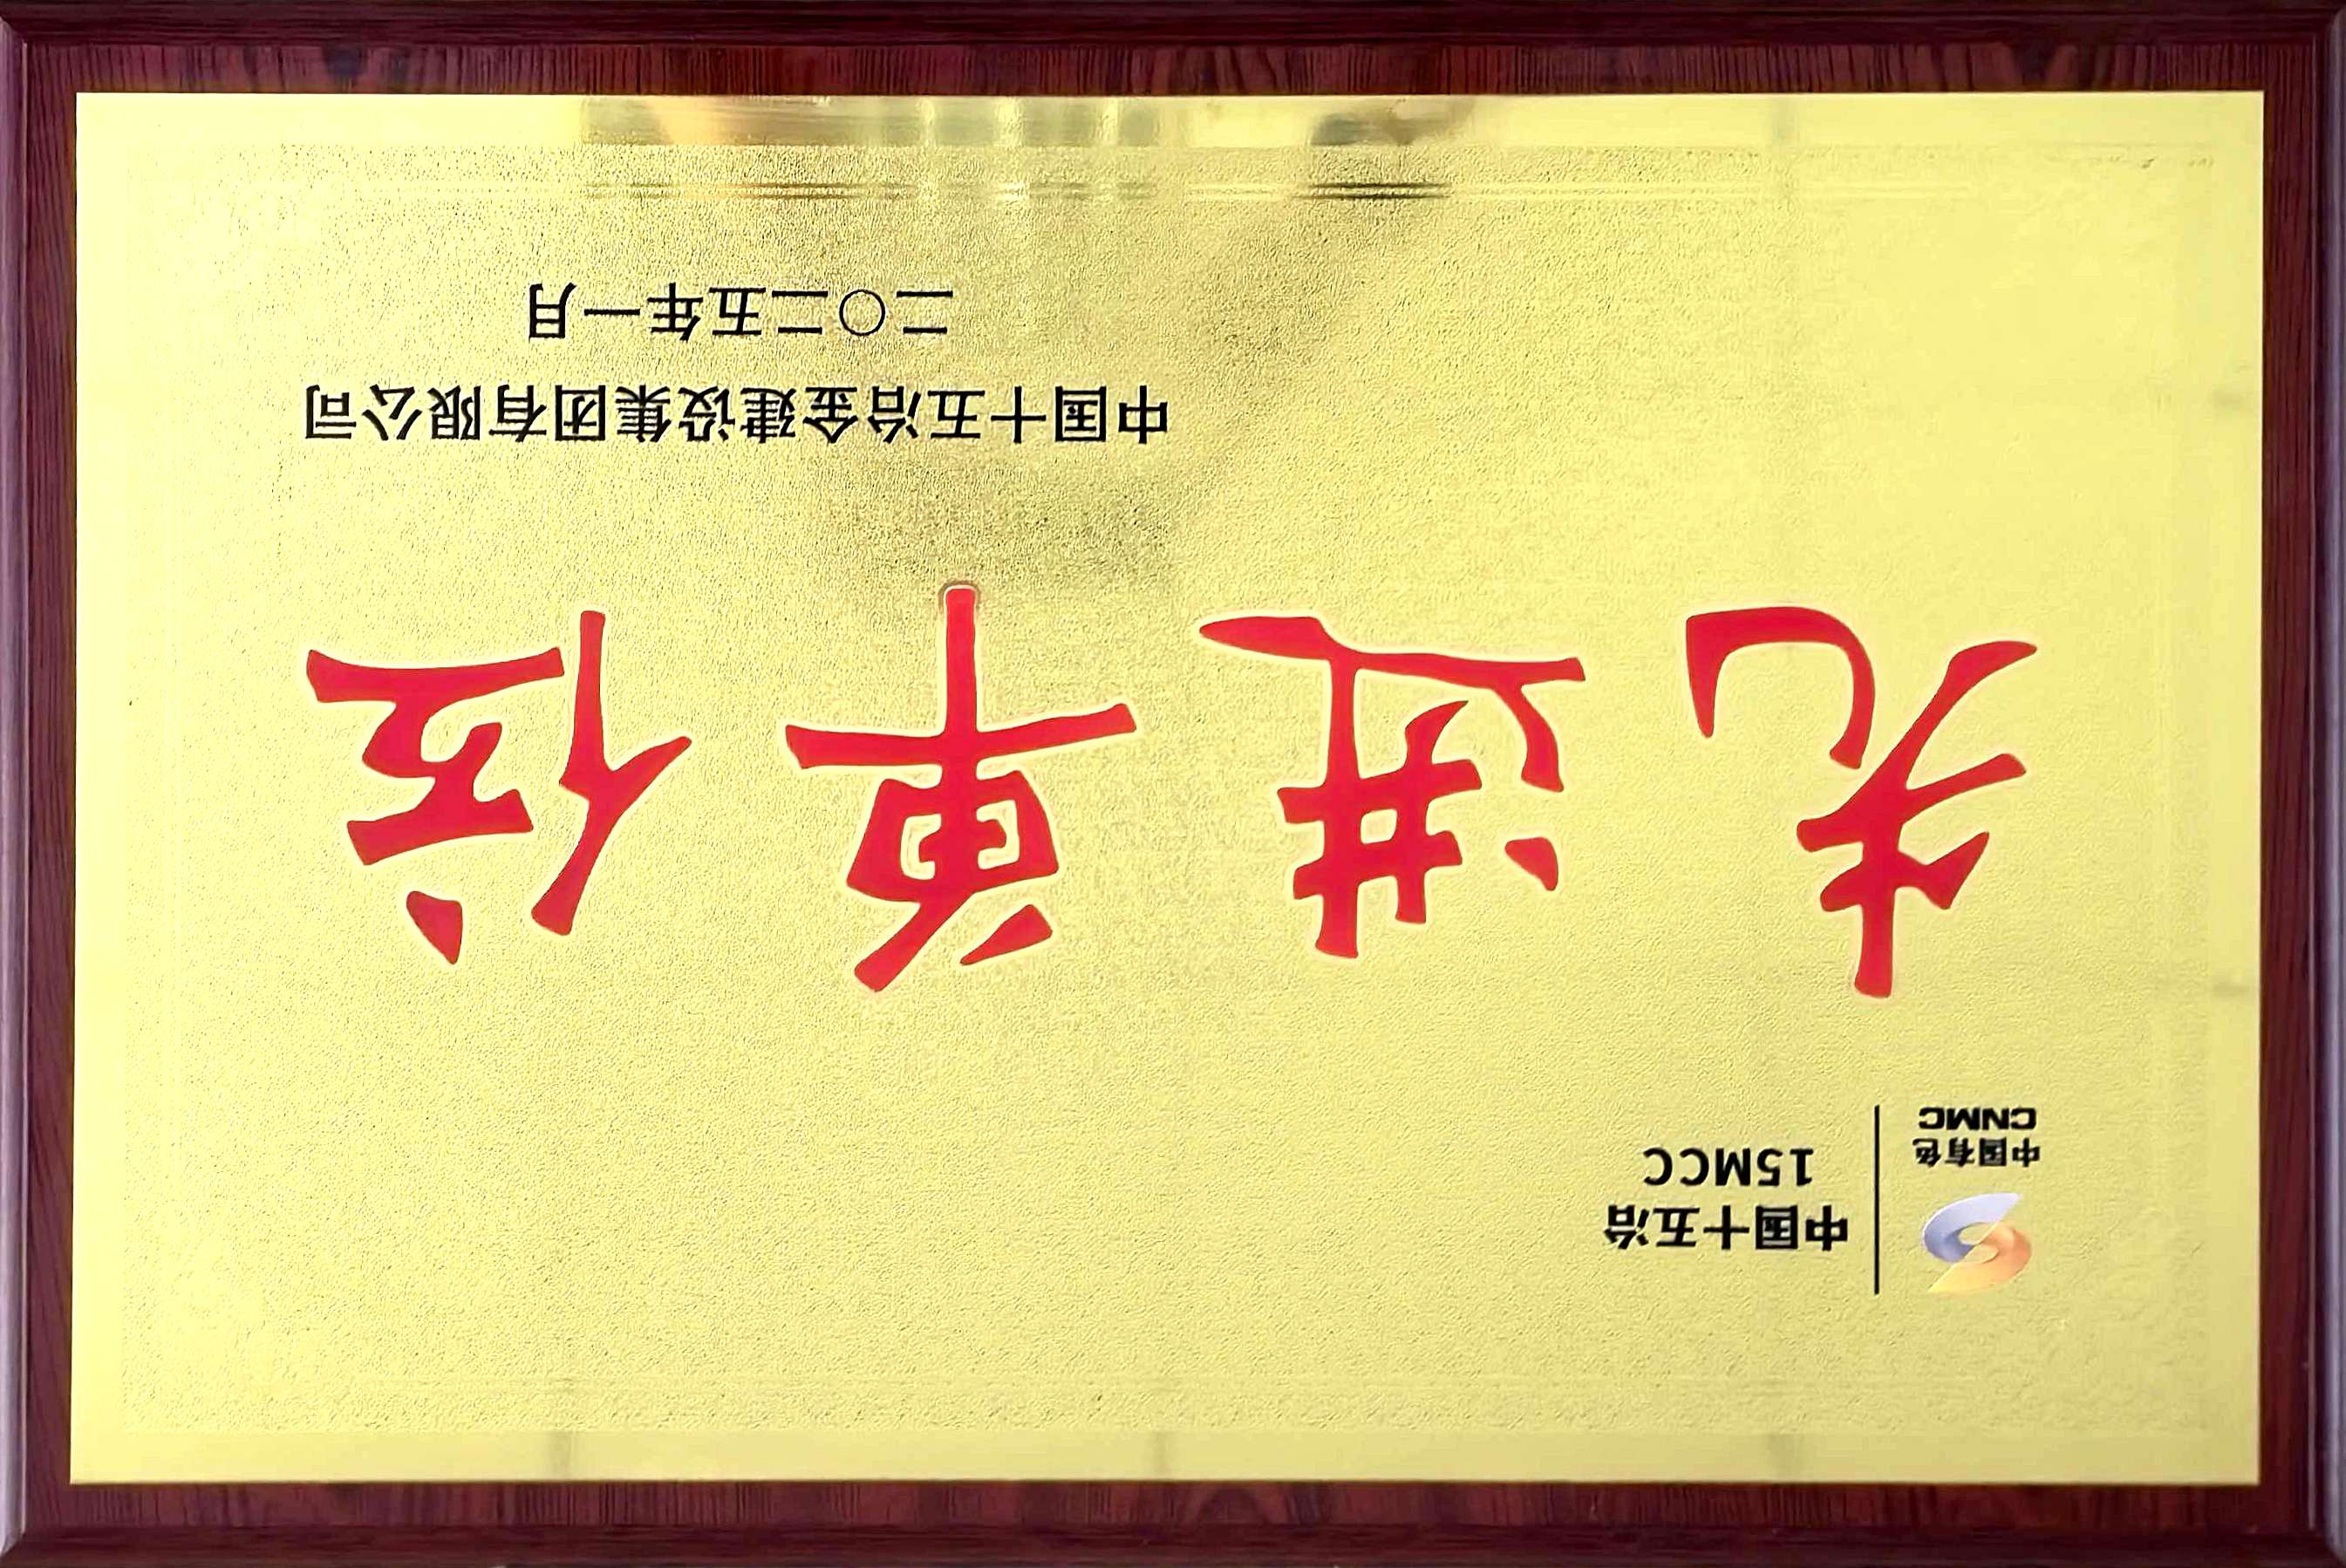 中国有色
CNMC
中国十五冶
15MCC
先进单位
中国十五冶金建设集团有限公司
二〇二五年一月